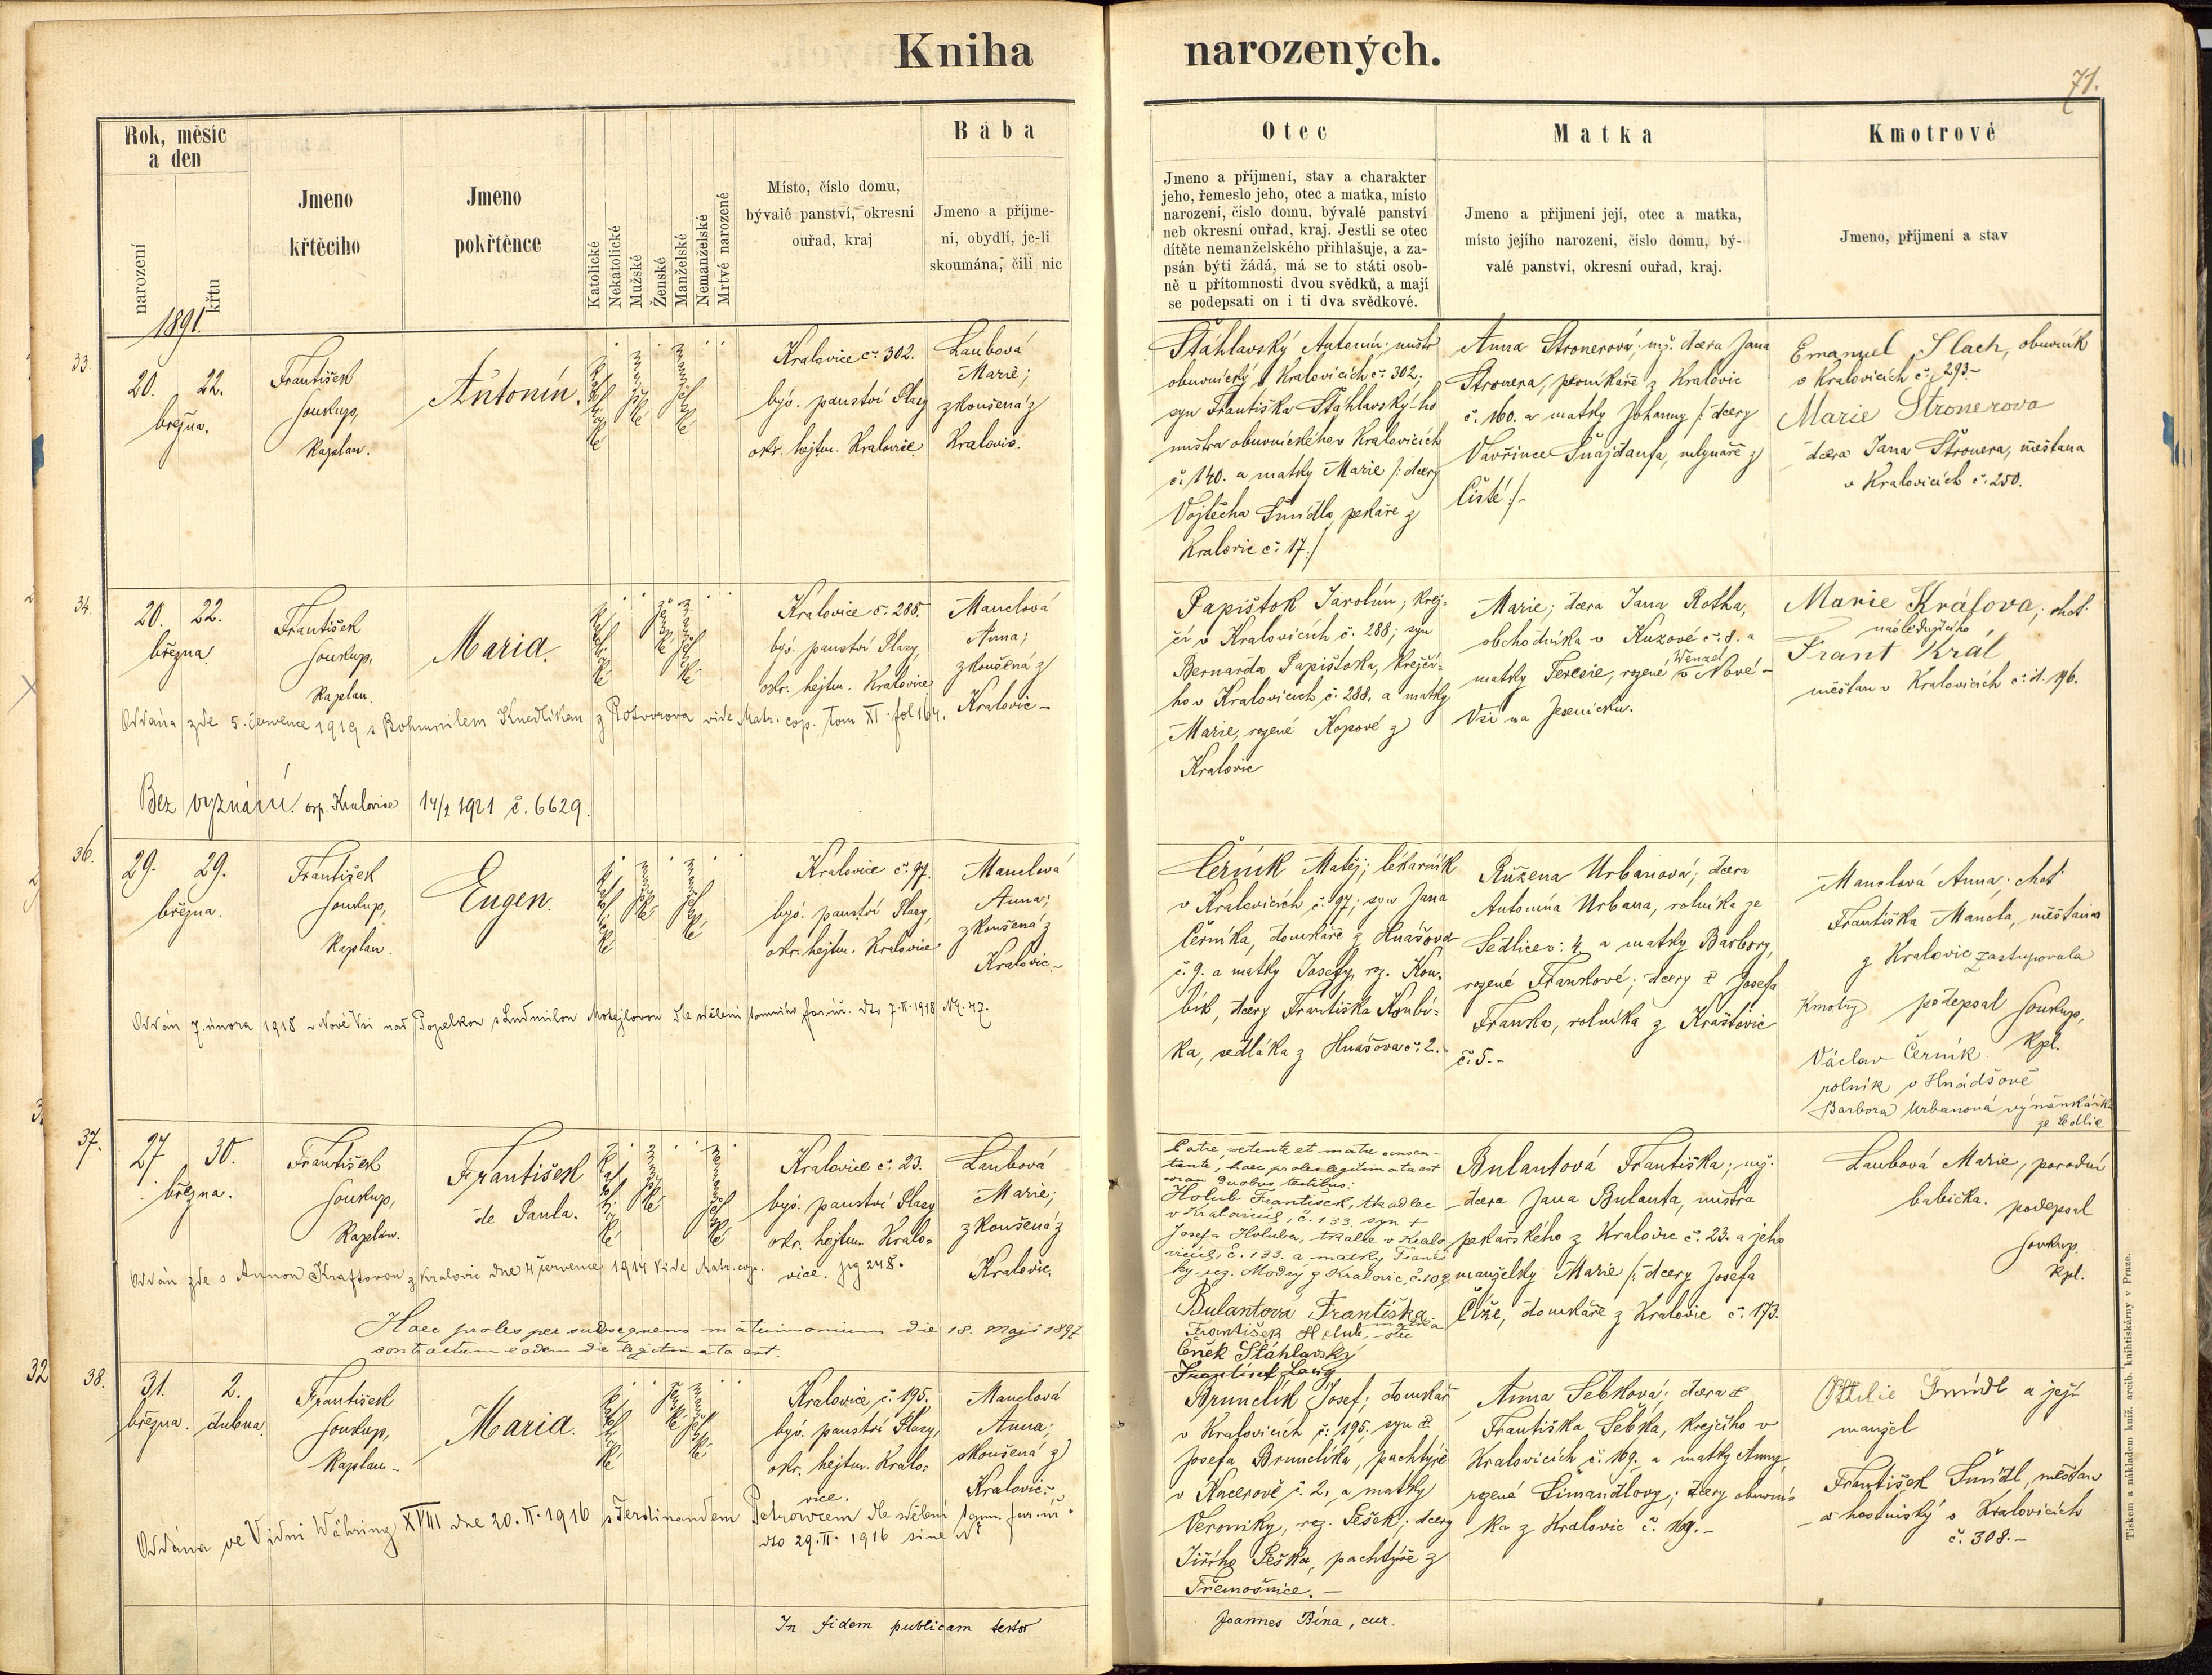 Kniha narozených.
71.
Rok, měsíc
a den
narození
křtu
Jmeno
křtěcího
Jmeno
pokřtěnce
Katolické
Nekatolické
Mužské
Ženské
Manželské
Nemanželské
Mrtvé narozené
Místo, číslo domu,
bývalé panství, okresní
ouřad, kraj
Bába
Jmeno a příjme-
ní, obydlí, je-li
skoumána, čili nic
Otec
Jmeno a příjmení, stav a charakter
jeho, řemeslo jeho, otec a matka, místo
narození, číslo domu, bývalé panství
neb okresní ouřad, kraj. Jestli se otec
dítěte nemanželského přihlašuje, a za-
psán býti žádá, má se to státi osob-
ně u přítomnosti dvou svědků, a mají
se podepsati on i ti dva svědkové.
Matka
Jmeno a přijmení její, otec a matka,
místo jejího narození, číslo domu, bý-
valé panství, okresní ouřad, kraj.
Kmotrové
Jmeno, příjmení a stav
1891.
33.
20. 22.
března.
František
Soukup,
Kaplan.
Antonín.
Katolické
mužské
manželské
Kralovice č. 302.
býv. panství Plasy
okr. hejtm. Kralovice
Laubová
Marie;
zkoušená z
Kralovic.
Šťáhlavský Antonín; mistr
obuvnický v Kralovicích č. 302,
syn Františka Šťáhlavský-ho
mistra obuvnického v Kralovicích
č. 140. a matky Marie /: dcery
Vojtěcha Šmídla, pekaře z
Kralovic č. 17 :/
Anna Stronerová; mž. dcera Jana
Stronera, perníkáře z Kralovic
č. 160. a matky Johanny /: dcery
Vavřince Šnajdaufa, mlynáře z
Čisté :/-
Emanuel Šlach, obuvník
v Kralovicích č. 293.-
Marie Stronerova
dcera Jana Štronera, měšťana
v Kralovicích č. 250.
34.
20. 22.
března.
František
Soukup,
Kaplan.
Maria.
Katolické
ženské
manželské
Kralovice č. 288.
býv. panství Plasy,
okr. hejtm. Kralovice
Manclová
Anna;
zkoušená z
Kralovic -
Papištok Jarolím; krej-
čí v Kralovicích č. 288; syn
Bernarda Papištoka, krejčí-
ho v Kralovicích č. 288. a matky
Marie, rozené Kopové z
Kralovic
Marie; dcera Jana Rotha,
obchodníka v Kuzové č. 8. a
matky Teresie, rozené Wenzel v Nové-
Vsi na Jesenicku.
Marie Králova, choť
následujícího
Frant Král
měšťan v Kralovicích č. d. 196.
Oddána zde 5. července 1919 s Bohumilem Knedlíkem z Potvorova vide Matr. cop. Tom XI. fol 164.
Bez vyznání. osp. Kralovice 14/2 1921 č. 6629.
36.
29. 29.
března.
František
Soukup,
Kaplan.
Eugen.
Katolické
mužské
manželské
Kralovice č. 97.
býv. panství Plasy,
okr. hejtm. Kralovice
Manclová
Anna;
zkoušená z
Kralovic.-
Černík Matěj; lékárník
v Kralovicích č. 97; syn Jana
Černíka, domkáře z Hnašova
č. 9. a matky Josefy, roz. Kou-
bík, dcery Františka Koubí-
ka, sedláka z Hnašova č. 2.
Růžena Urbanová; dcera
Antonína Urbana, rolníka ze
Sedlice č. 4. a matky Barbory,
rozené Frankové; dcery Josefa
Franka, rolníka z Kraštovic
č. 5.-
Manclová Anna. choť
Františka Mancla, měšťana
z Kralovic zastupovala
kmotry podepsal Soukup,
kpl.
Václav Černík
rolník v Hnádšově
Barbora Urbanová výměnkářka
ze Sedlic
Oddán 7. února 1918 v Nové Vsi nad Popelkou s Ludmilou dle sdělení tamního far. úř. dto 7.II.1918 No. 47.
37.
27 30.
března.
František
Soukup,
Kaplan.
František
de Paula.
Katolické
mužské
nemanželské
Kralovice č. 23.
býv. panství Plasy
okr. hejtm. Kralo-
vice.
Laubová
Marie;
zkoušená z
Kralovic.
Patre petente et matre consen-
tiente, haec proles legitimata est
coram duobus testibus:
Holub František, tkadlec
v Kralovicích, č. 133. syn +
Josefa Holuba, tkalce v Kralo
vicích, č. 133. a matky Františ
ky roz. Modrý z Kralovic, č. 109
Bulantová Františka
matka
František Holub, otec
Čeněk Šťáhlavský
František Lang
Bulantová Františka; mž.
dcera Jana Bulanta, mistra
pekařského z Kralovic č. 23. a jeho
manželky Marie /: dcery Josefa
Číže, domkáře z Kralovic č. 173.
Laubová Marie, porodní
babička. podepsal
Soukup
kpl.
Oddán zde s Annou Kraftovou z Kralovic dne 4 července 1914 Vide Matr. cop. pag 248.
Haec proles per subsequens matrimonium die 18. Maji 1897
contractum eadem die legitimata est.
38.
31. 2.
března. dubna.
František
Soukup,
Kaplan-
Maria.
Katolické
ženské
manželské
Kralovice č. 195.
býv. panství Plasy,
okr. hejtm. Kralo-
vice.
Manclová
Anna;
skoušená z
Kralovic.-
Brunclík Josef; domkář
v Kralovicích č. 195. syn
Josefa Brunclíka, pachtýře
v Kacerově č. 2. a matky
Veroniky, roz. Pešek; dcery
Jiřího Peška, pachtýře z
Třemošnice. -
Anna Šebková; dcera
Františka Šebka, krejčího v
Kralovicích č. 169. a matky Anny,
rozené Šimandlovy; dcery obuvní-
ka z Kralovic č. 169.-
Ottilie Šmídl a její
manžel
František Šmídl, měšťan
a hostinský v Kralovicích
č. 308.-
Oddána ve Vídni Währing XVIII dne 20.II.1916 s Ferdinandem Petrowcem dle sdělení tam. far. úř.
dto 29.II. 1916 sine No
32
In fidem publicam testor
Joannes Bína, cur.
Tiskem a nákladem kníž. arcib. knihtiskárny v Praze.